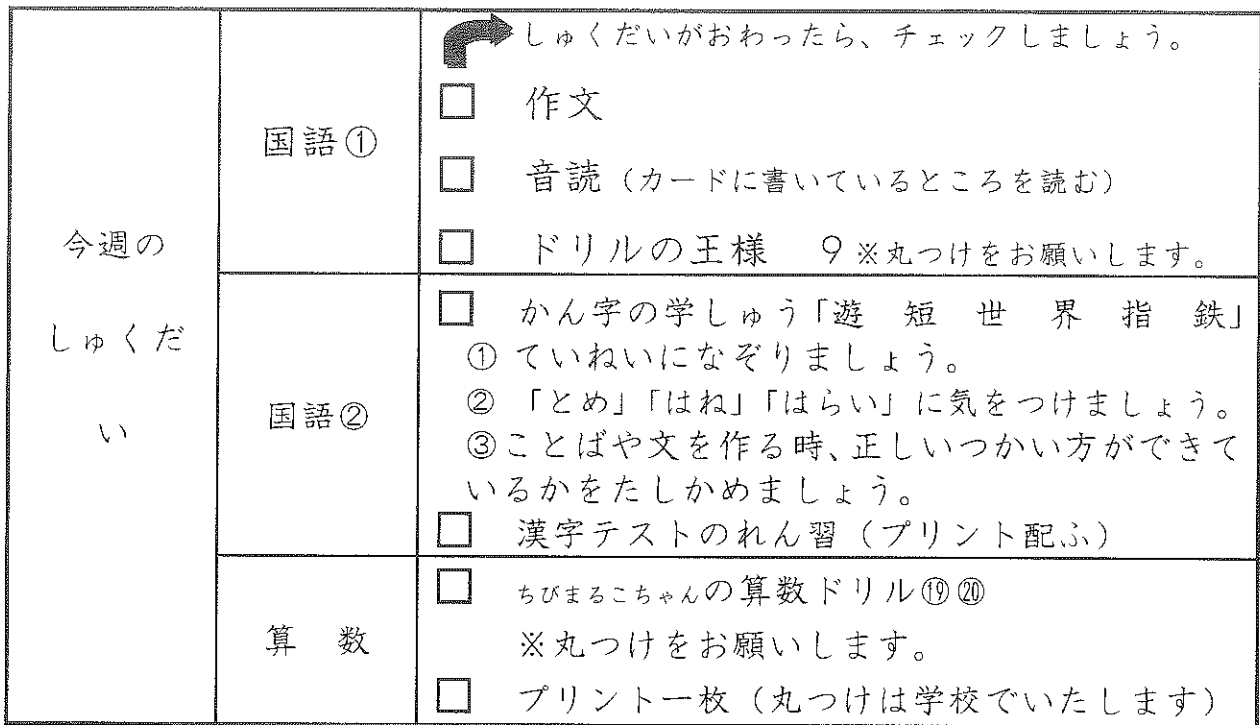 今週の
しゅくだ
い
国語①
しゅくだいがおわったら、チェックしましょう。
□ 作文
□ 音読（カードに書いているところを読む）
□ ドリルの王様 9 ※丸つけをお願いします。
国語②
□ かん字の学しゅう「遊 短 世 界 指 鉄」
① ていねいになぞりましょう。
② 「とめ」「はね」「はらい」に気をつけましょう。
③ことばや文を作る時、正しいつかい方ができて
いるかをたしかめましょう。
□ 漢字テストのれん習（プリント配ふ）
算 数
□ ちびまるこちゃんの算数ドリル⑲⑳
※丸つけをお願いします。
□ プリント一枚（丸つけは学校でいたします）